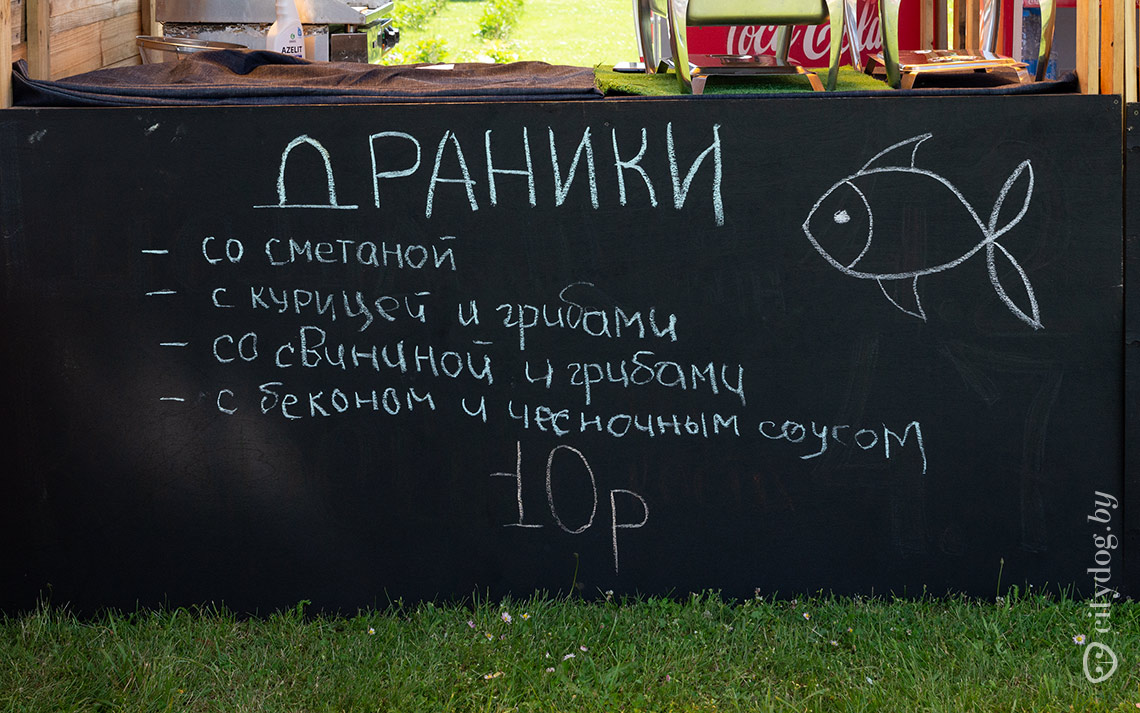 AZELIT
Coca-Cola
ДРАНИКИ
- со сметаной
- с курицей и грибами
- со свининой и грибами
- с беконом и чесночным соусом
10р
citydog.by